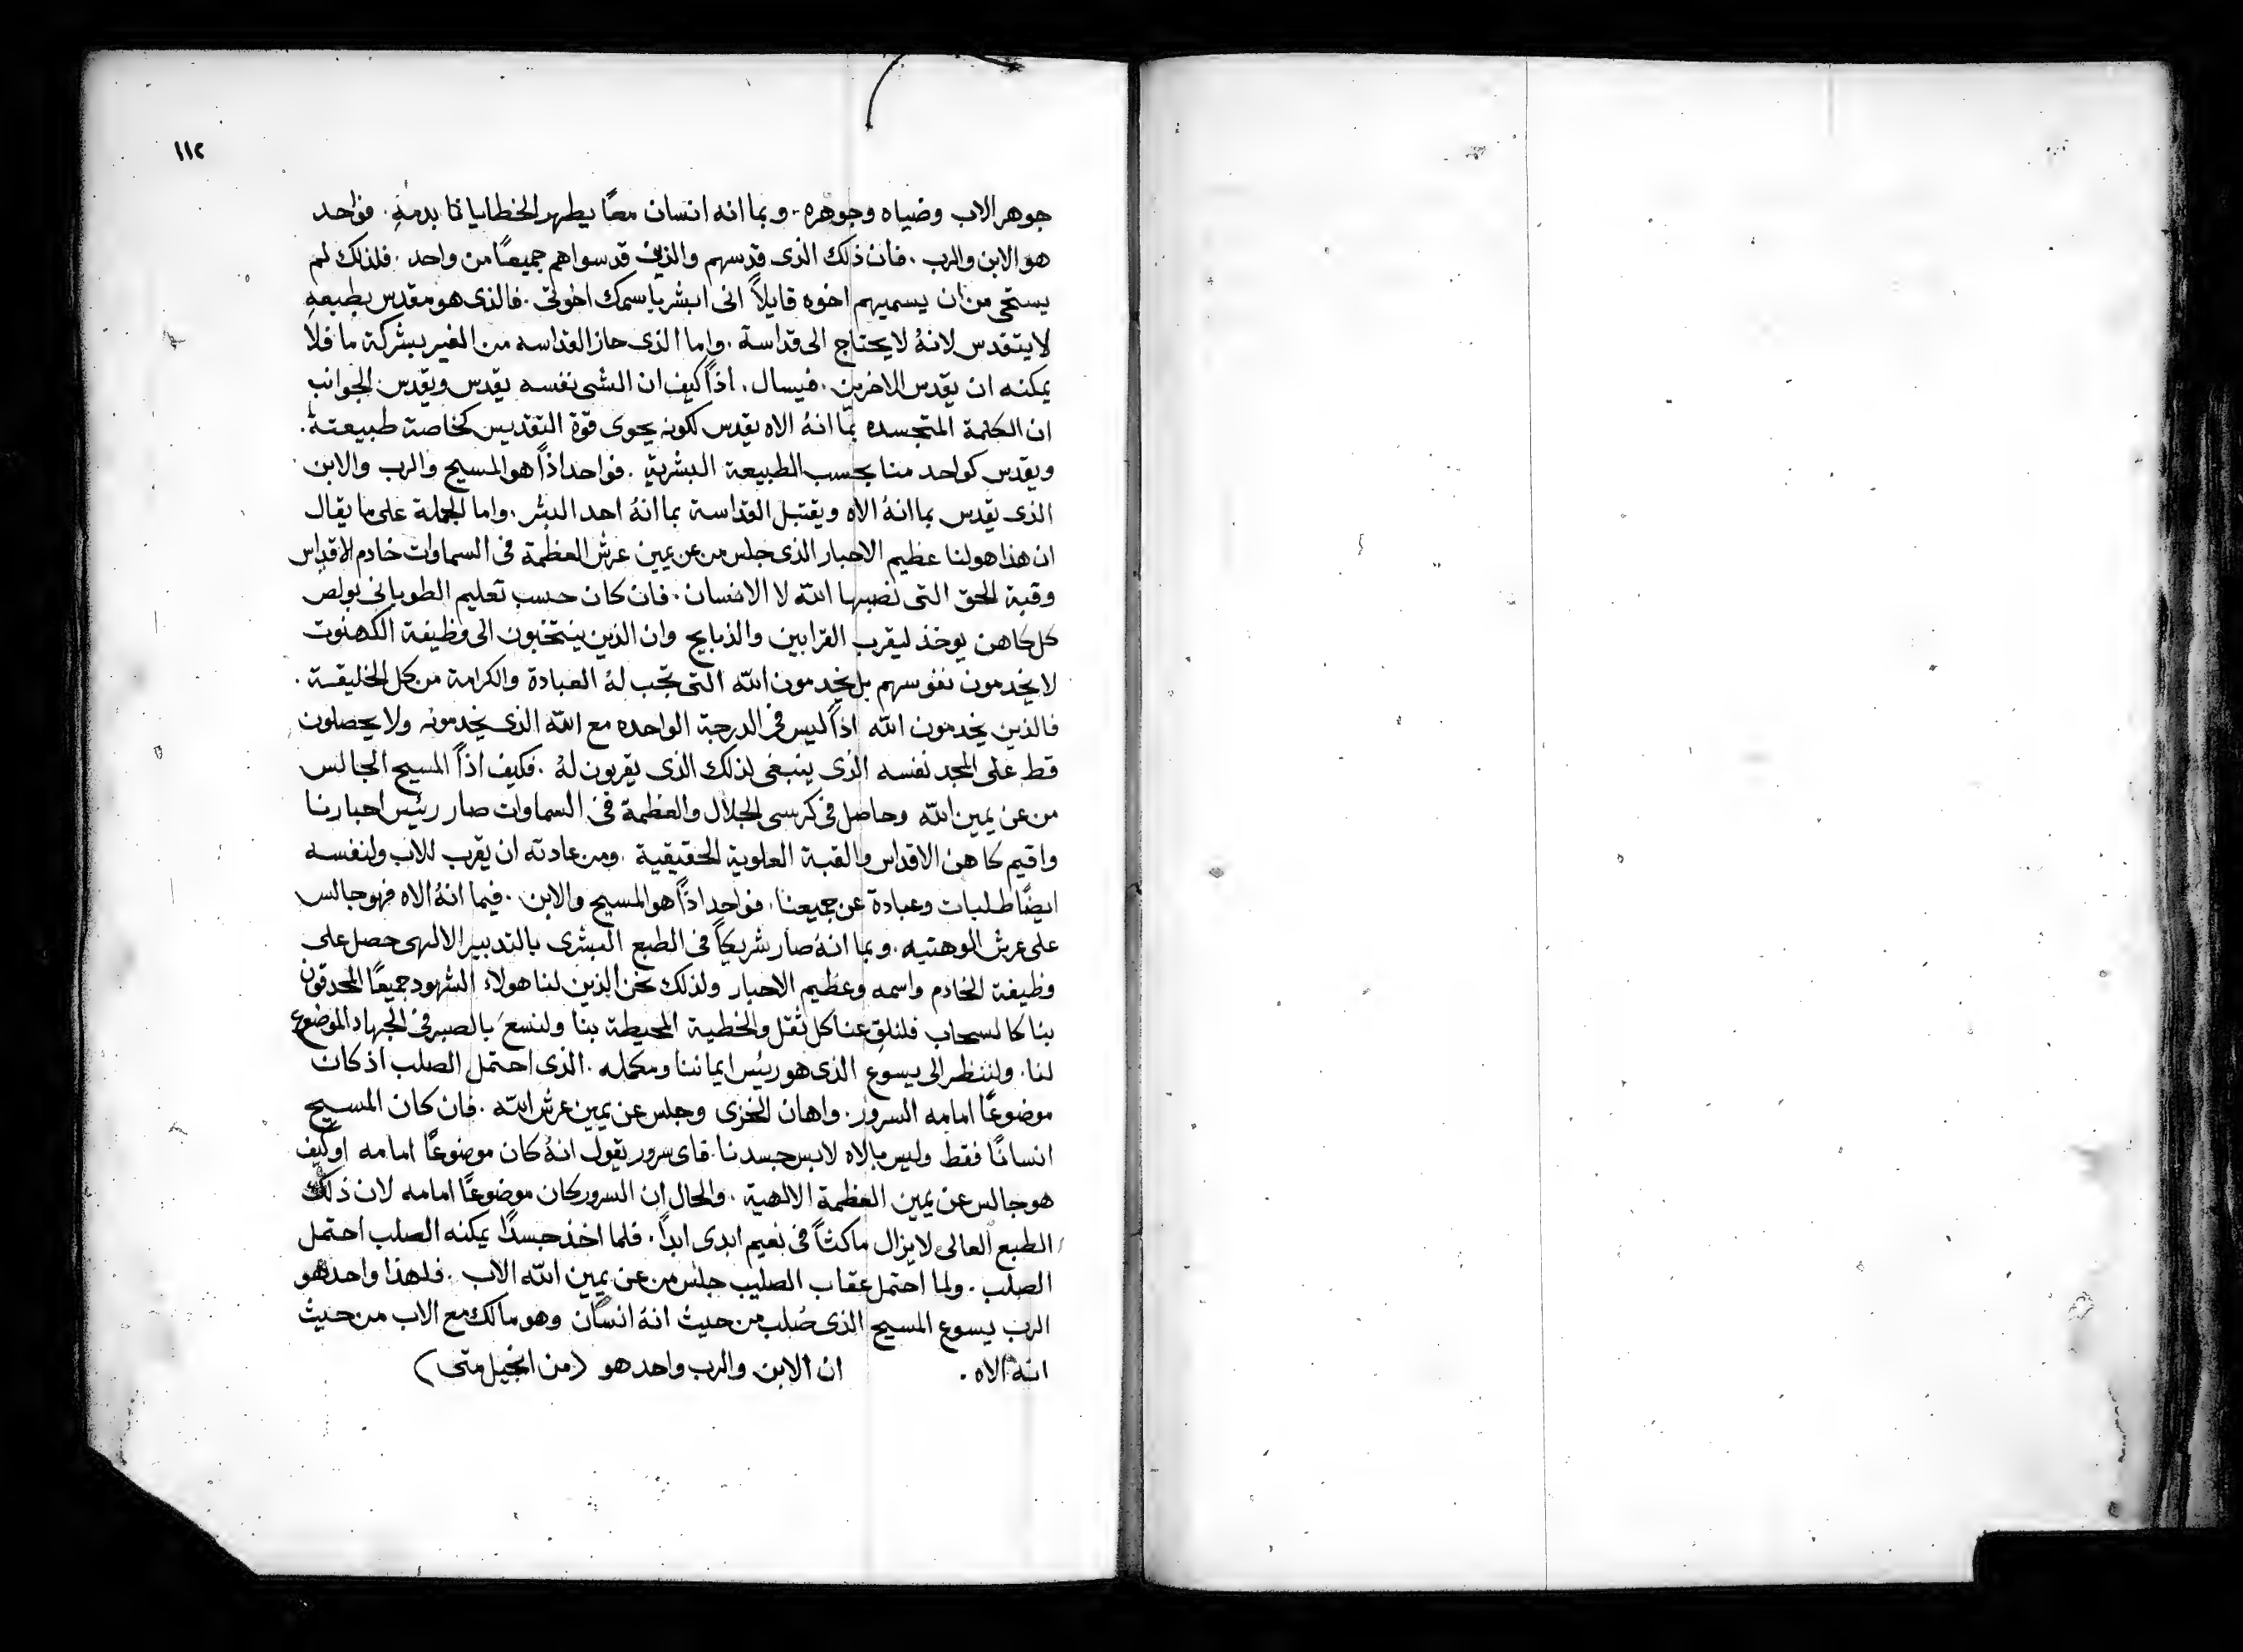 ١١٢
جوهر الاب وضياه وجوهره. وبما انه انسان معًا يطهر الخطايانا بدمهِ. فواحد
هو الابن والرب. فان ذلك الذى قدسهم والذين قدسوا هم جميعًا من واحد. فلذلك لم
يستحى من ان يسميهم اخوه قايلاً انى ابشر باسمك اخوتى. فالذى هو مقدس بطبعهِ
لا يتقدس لانهُ لا يحتاج الى قداسة. واما الذى حاز القداسه من الغير بشركة ما فلا
يمكنه ان يقدس الاخرين. فيسال. اذاً كيف ان الشى نفسه يقدس ويقدس. الجوانب
ان الكلمة المتجسده بما انهُ الاه يقدس لكونه يحوى قوة التقديس كخاصة طبيعتهُ.
ويقدس كواحد منا بحسب الطبيعة البشرية. فواحد اذاً هو المسيح والرب والابن
الذى يقدس بما انهُ الاه ويقتبل القداسة بما انهُ احد البشر. واما الجملة على ما يقال
ان هذا هو لنا عظيم الاحبار الذى جلس من عن يمين عرش العظمة فى السماوات خادم الاقداس
وقبة الحق التى نصبها الله لا الانسان. فان كان حسب تعليم الطوبانى بولص
كل كاهن يوخذ ليقرب القرابين والذبايح وان الذين ينتخبون الى وظيفة الكهنوت
لا يخدمون نفوسهم بل يخدمون الله التى تجب لهُ العبادة والكرامة من كل الخليقة.
فالذين يخدمون الله اذاً ليس فى الدرجة الواحده مع الله الذى يخدمونه ولا يحصلون
قط على المجد نفسه الذى ينبغى لذلك الذى يقربون لهُ. فكيف اذاً المسيح الجالس
من عن يمين الله وحاصل فى كرسى الجلال والعظمة فى السماوات صار رئيس احبارنا
واقيم كاهن الاقداس والقبة العلوية الحقيقية. ومن عادته ان يقرب للاب ولنفسه
ايضًا طلبات وعبادة عن جميعنا. فواحد اذاً هو المسيح والابن. فيما انهُ الاه فهو جالس
على عرش الوهتيه. وبما انهُ صار شريكاً فى الطبع البشرى بالتدبير الالهى حصل على
وظيفة الخادم واسمه وعظيم الاحبار ولذلك نحن الذين لنا هولاء الشهود جميعًا المحدقون
بنا كالسحاب فلنلقِ عنا كل ثقل والخطية المحيطة بنا ولنسعَ بالصبر فى الجهاد الموضوع
لنا. ولننظر الى يسوع الذى هو رئيس ايماننا ومكمله. الذى احتمل الصلب اذ كان
موضوعًا امامه السرور. واهان الخزى وجلس عن يمين عرش الله. فان كان المسيح
انسانًا فقط وليس بالاه لابس جسدنا. فاى سرور يقول انهُ كان موضوعًا امامه او كيف
هو جالس عن يمين العظمة الالهية. والحال ان السرور كان موضوعًا امامه لان ذلك
الطبع العالى لا يزال ماكثاً فى نعيم ابدى ابداً. فلما اخذ جسدًا يمكنه الصلب احتمل
الصلب. ولما احتمل عقاب الصليب جلس من عن يمين الله الاب. فلهذا واحد هو
الرب يسوع المسيح الذى صُلب من حيث انهُ انسان وهو مالك مع الاب من حيث
انه الاه. ان الابن والرب واحد هو (من انجيل متى)